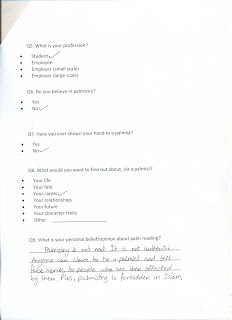 Q5. What is your profession?
• Student ✓
• Employee
• Employer (small scale)
• Employer (large scale)
Q6. Do you believe in palmistry?
• Yes
• No ✓
Q7. Have you ever shown your hand to a palmist?
• Yes
• No ✓
Q8. What would you want to find out about, via a palmist?
• Your life
• Your fate
• Your career ✓
• Your relationships
• Your future
• Your character traits
• Other
Q9. What is your personal belief/opinion about palm reading?
Palmistry is not real. It is not authentic.
Anyone can claim to be a palmist and tell
fake stories to people who are then affected
by them. Plus, palmistry is forbidden in Islam.